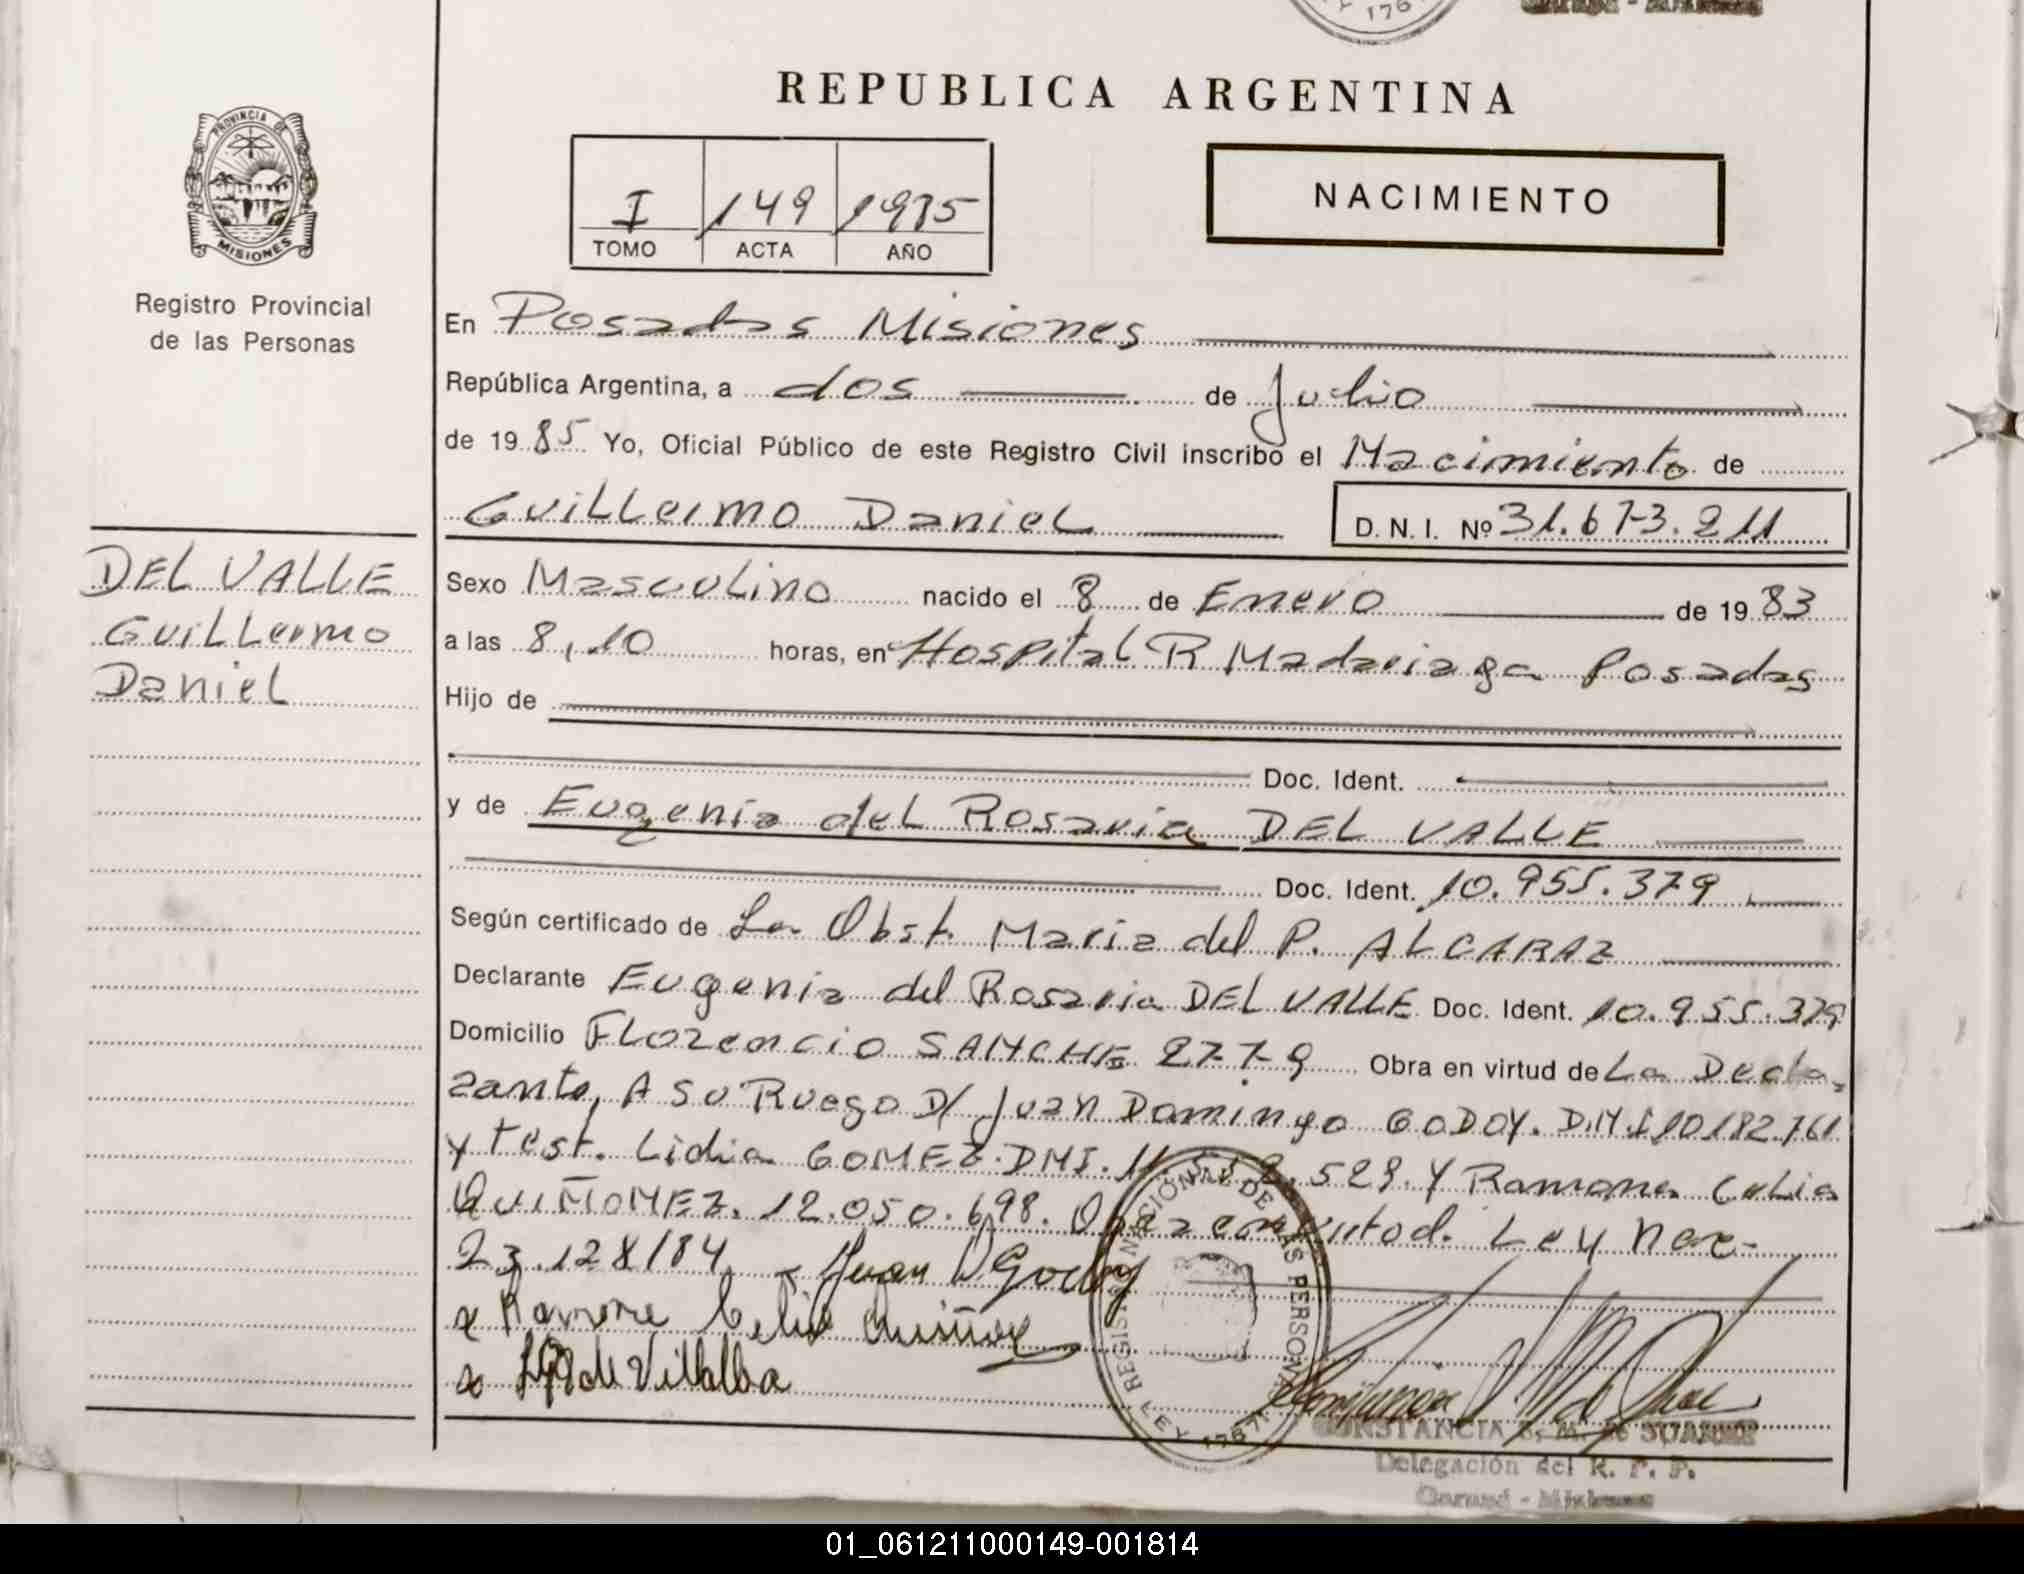 176
REPUBLICA ARGENTINA
PROVINCIA DE
MISIONES
I 149 1985
TOMO ACTA AÑO
NACIMIENTO
Registro Provincial
de las Personas
En Posadas Misiones
República Argentina, a dos de Julio
de 1985 Yo, Oficial Público de este Registro Civil inscribo el Nacimiento de
Guillermo Daniel D. N. I. Nº 31.673.211
DEL VALLE
Guillermo
Daniel
Sexo Masculino nacido el 8 de Enero de 1983
a las 8,10 horas, en Hospital R Madariaga Posadas
Hijo de
Doc. Ident.
y de Eugenia del Rosario DEL VALLE
Doc. Ident. 10.955.379
Según certificado de La Obst. Maria del P. ALCARAZ
Declarante Eugenia del Rosario DEL VALLE Doc. Ident. 10.955.379
Domicilio Florencio SANCHE 2779 Obra en virtud de La Decla
rante, A SU Ruego D/ Juan Domingo GODOY. D.N.I 10182.761
y test. Lidia GOMEZ. DNI. 529. Y Ramona Celia
QUIÑONEZ. 12.050.698. Ley Nac
23.128/84 Juan D Godoy
x Ramona Celia Quiñonez
x de Villalba
REGISTRO NACIONAL DE LAS PERSONAS
LEY 17671
CONSTANCIA S. M. de JUAREZ
Delegación del R. P. P.
Garupá - Misiones
01_061211000149-001814